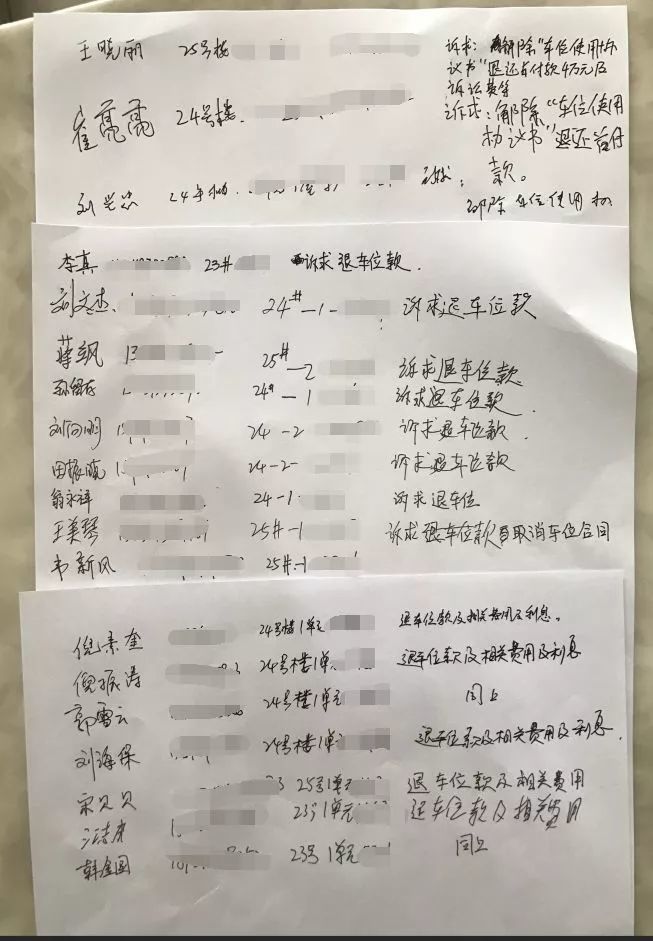 王晓丽 25号楼 诉求:解除"车位使用协
议书"退还首付款4万元及
诉讼费等
崔亮亮 24号楼 诉求:解除"车位使用
协议书"退还首付
款。
刘 24号 解除车位使用协
李真 23# 诉求退车位款.
刘文杰 24#-1- 诉求退车位款
蒋飒 13 25#-2 诉求退车位款
24#-1 诉求退车位款
刘向明 24-2 诉求退车位款
田振 24-2- 诉求退车位款
翁永祥 24-1- 诉求退车位
王美琴 25#-1 诉求退车位款取消车位合同
韦新风 25#-1
倪素奎 24号楼1单元 退车位款及相关费用及利息.
倪振涛 24号楼1单 退车位款及相关费用及利息
郭雪云 24号楼1单元 同上
刘海保 24号楼1单 退车位款及相关费用及利息.
宋贝贝 25号1单元 退车位款及相关费用
23号1单元 退车位款及相关费用
韩金国 23号1单元 同上